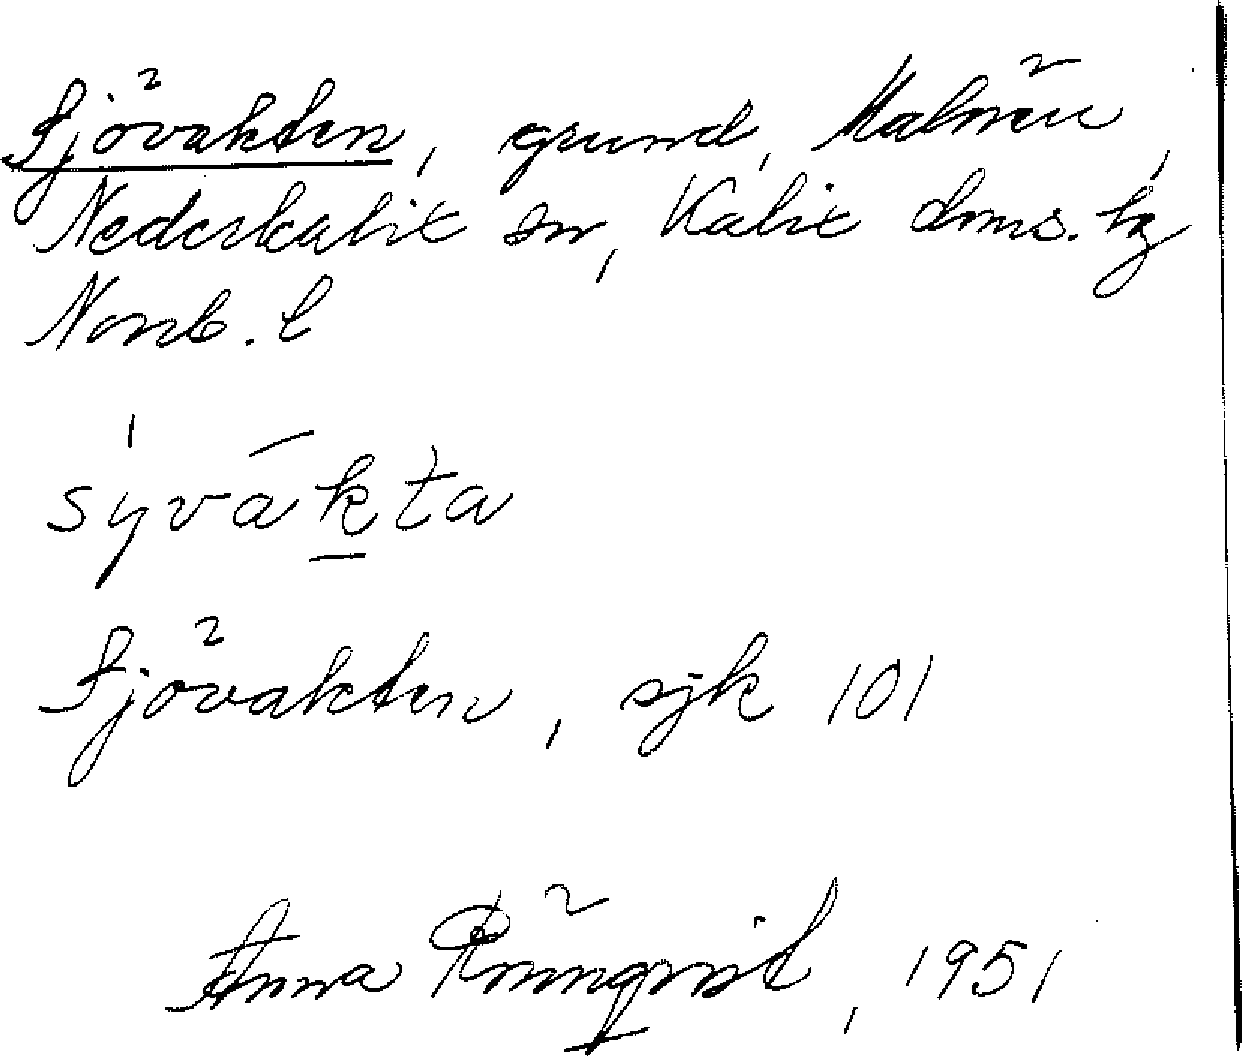 Sjövakten, grund, Malören,
Nederkalix sn, Kalix doms. hg
Norrb. l
sy̍vák̲ta
Sjövakten, sjk 101
Anna Rönnqvist, 1951